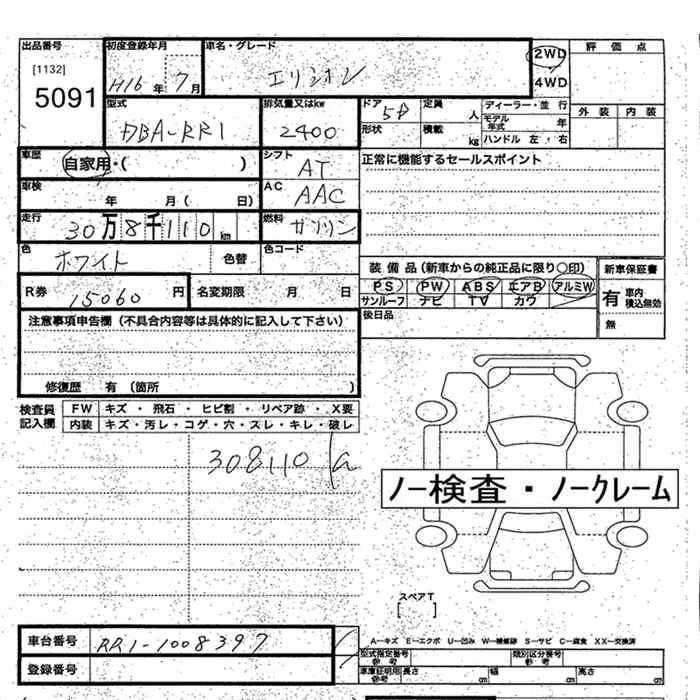 出品番号
[1132]
5091
初度登録年月
H16年 7月
車名・グレード
エリシオン
2WD
4WD
評価点
外装 内装
型式
DBA-RR1
排気量又はkw
2400
ドア 5D
定員 人
形状
積載 kg
ディーラー・並行
モデル年式 年
ハンドル 左・右
車歴
自家用・( )
シフト
AT
正常に機能するセールスポイント
車検
年 月( 日)
AC
AAC
走行
30万8千110km
燃料
ガソリン
色
ホワイト
色替
色コード
装備品(新車からの純正品に限り○印)
PS PW ABS エアB アルミW
サンルーフ ナビ TV カワ
新車保証書
有 車内積込無効
無
R券
15060円
名変期限 月 日
後日品
注意事項申告欄(不具合内容等は具体的に記入して下さい)
修復歴 有 (箇所 )
検査員記入欄
FW キズ・飛石・ヒビ割・リペア跡・X要
内装 キズ・汚レ・コゲ・穴・スレ・キレ・破レ
308110
ノー検査・ノークレーム
スペアT
[ ]
車台番号
RR1-1008397
登録番号
A-キズ E-エクボ U-凹み W-補修跡 S-サビ C-腐食 XX-交換済
型式指定番号 参考
類別区分番号 参考
車庫証明用 参考
長さ cm
幅 cm
高さ cm